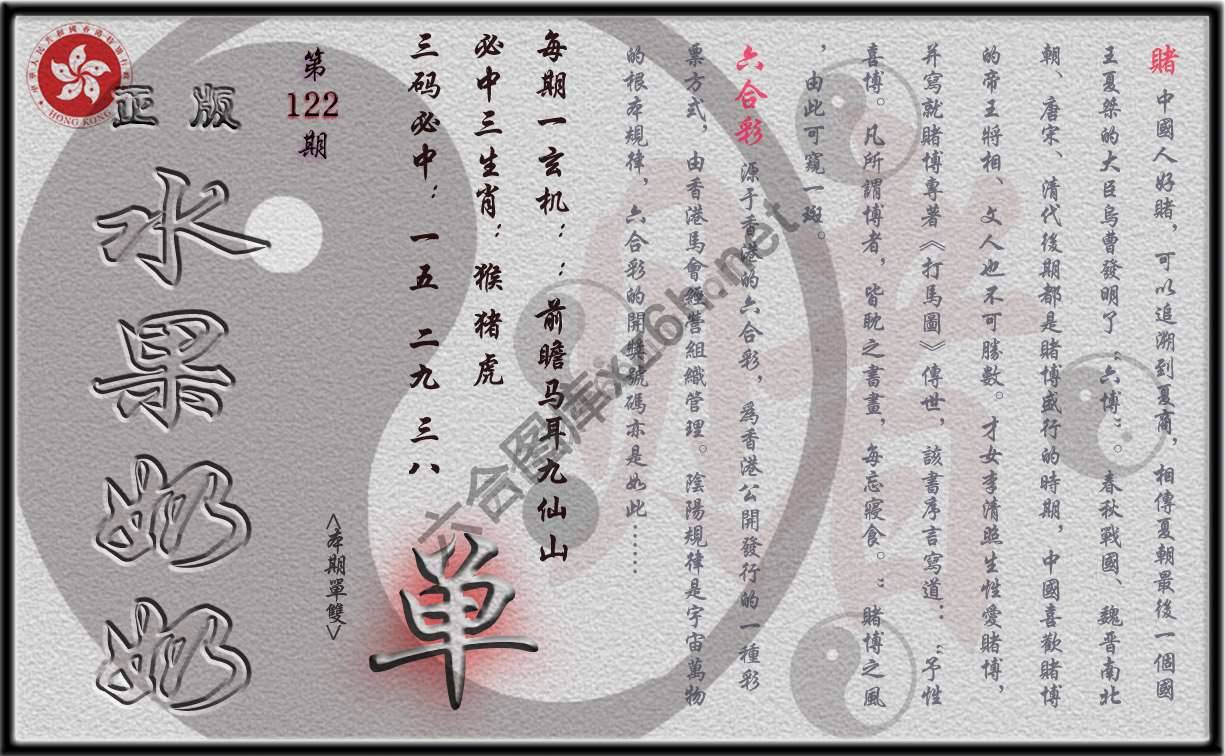 賭 中國人好賭，可以追溯到夏商，相傳夏朝最後一個國
王夏桀的大臣烏曹發明了“六博”。春秋戰國、魏晋南北
朝、唐宋、清代後期都是賭博盛行的時期，中國喜歡賭博
的帝王將相、文人也不可勝數。才女李清照生性愛賭博，
并寫就賭博專著《打馬圖》傳世，該書序言寫道：“予性
喜博。凡所謂博者，皆眈之書畫，每忘寢食。”賭博之風
，由此可窺一斑。
六合彩 源于香港的六合彩，爲香港公開發行的一種彩
票方式，由香港馬會經營組織管理。陰陽規律是宇宙萬物
的根本規律，六合彩的開獎號碼亦是如此……
每期一玄机：：前瞻马耳九仙山
必中三生肖：猴猪虎
三码必中：一五 二九 三八
第
122
期
<本期單雙>
单
正版
水果奶奶
HONG KONG
六合图库xg16h.net